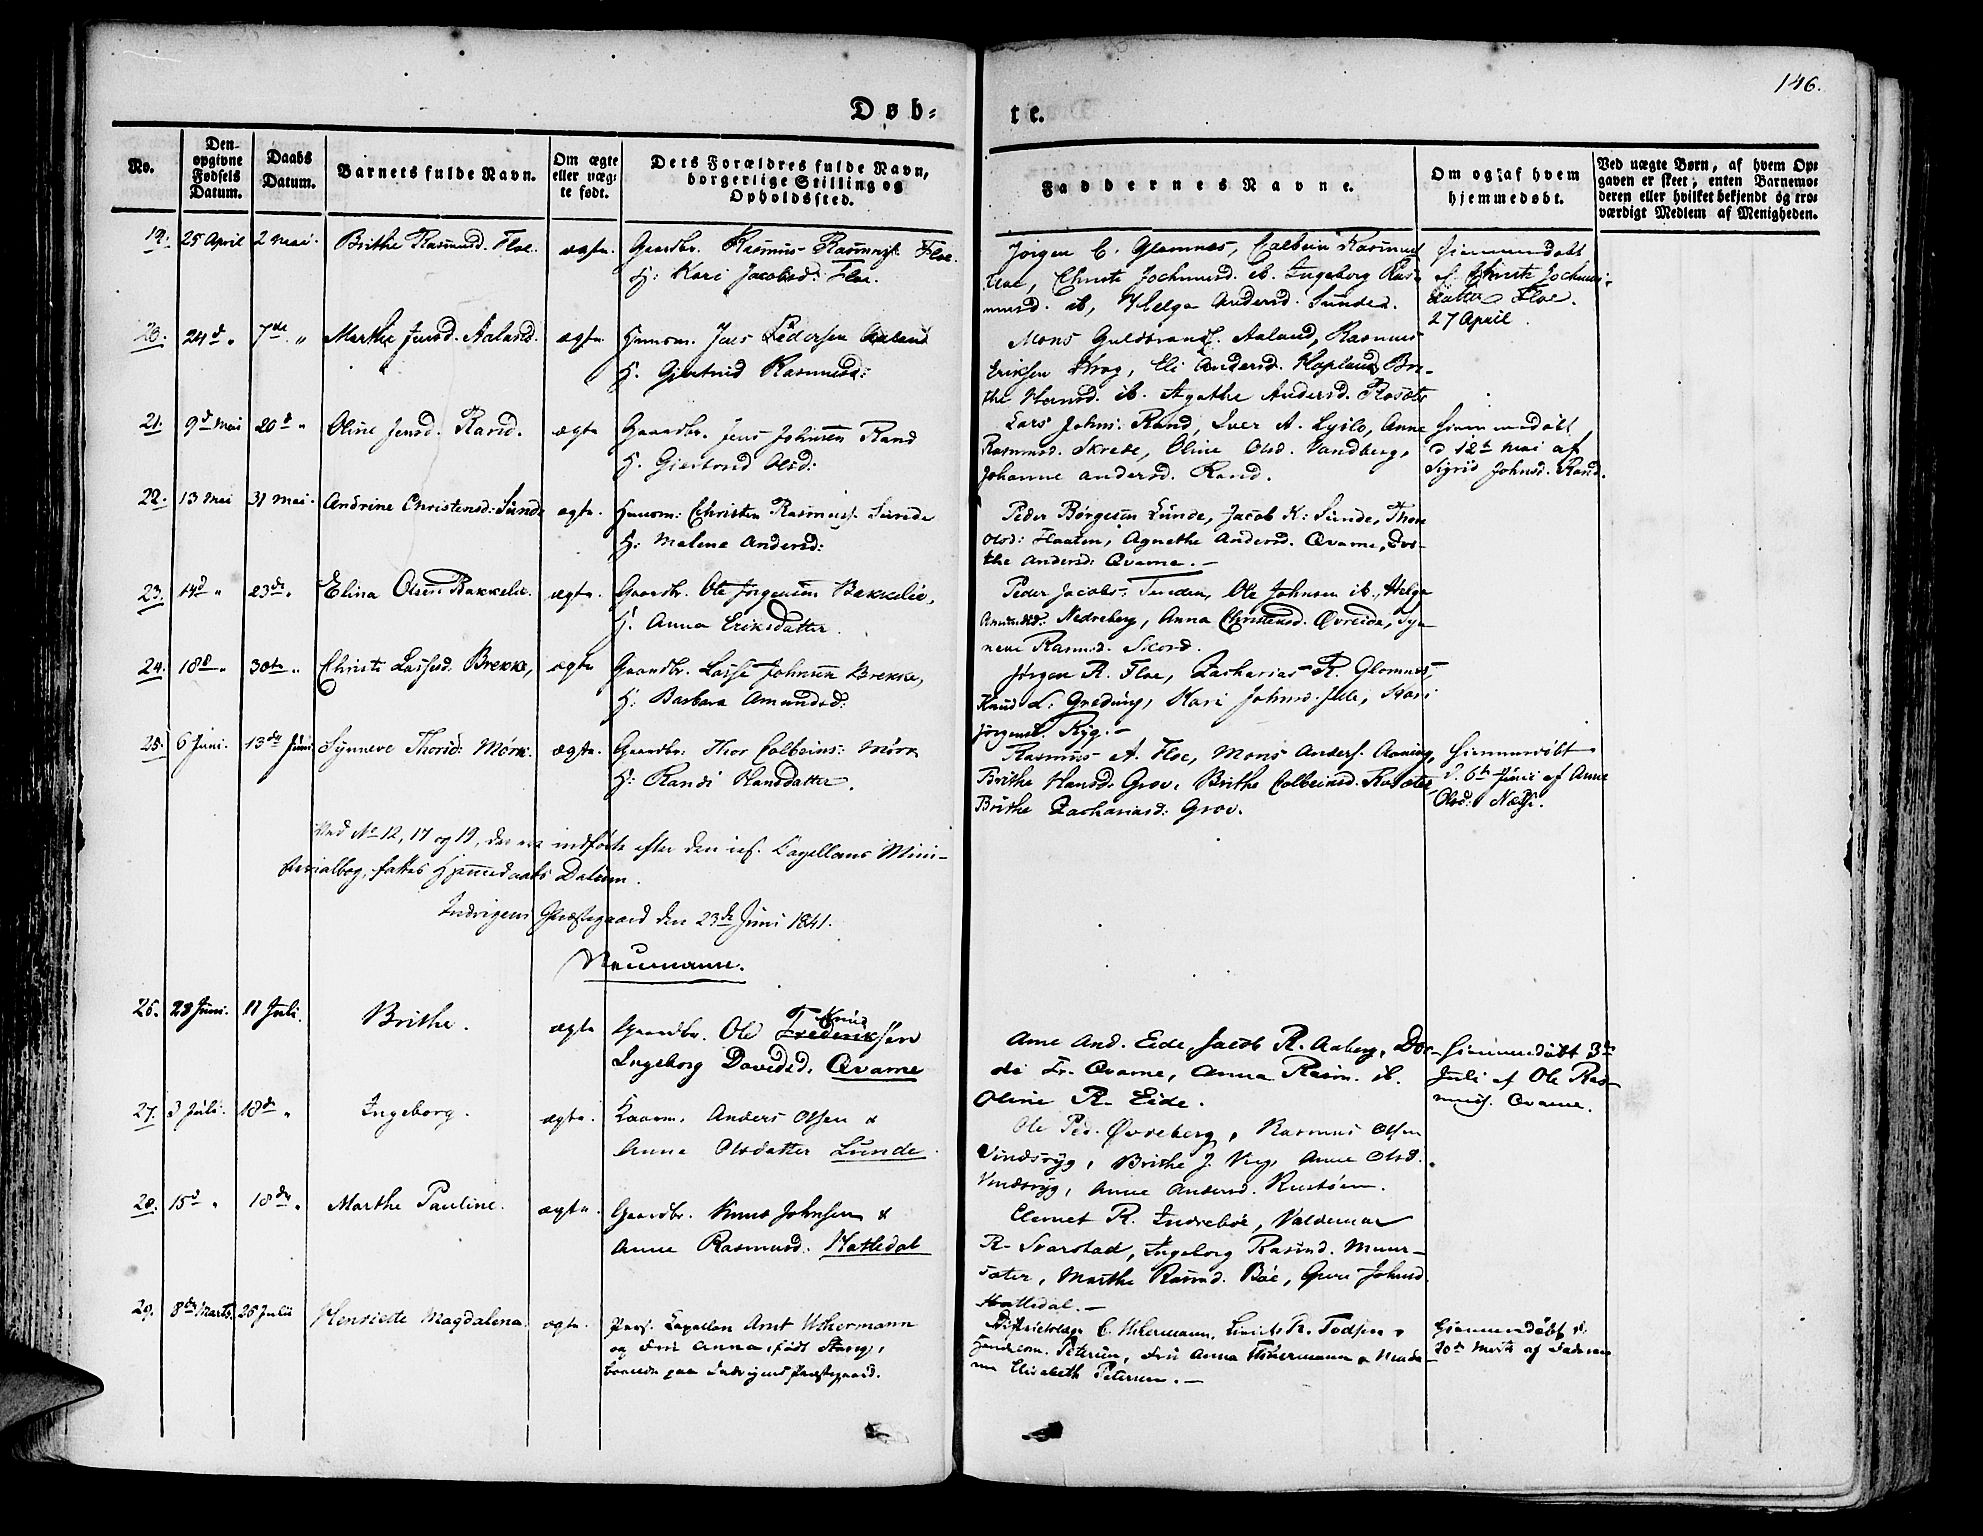 146.
Døb-
te.
No.
Den opgivne Fødsels Datum.
Daabs Datum.
Barnets fulde Navn.
Om ægte eller uægte født.
Dets Forældres fulde Navn, borgerlige Stilling og Opholdssted.
Faddernes Navne.
Om og af hvem hjemmedøbt.
Ved uægte Børn, af hvem Opgaven er skeet; enten Barnemoderen eller hvilket bekjendt og troværdigt Medlem af Menigheden.
19. 25 April 2 Mai. Brithe Rasmusd. Floe. ægte. Gaardbr. Rasmus Rasmuss. Floe.
H: Kari Jacobsd: Floe.
Jørgen C. Glomnes, Colbein Rasmuss
Floe, Christi Jochumsd. ib. Ingeborg Ras-
musd. ib, Helge Andersd. Sunde.
Hjemmedøbt
af Christi Jochums-
datter Floe.
27 April.
20. 24d " 7de " Marthe Jensd. Aaland. ægte Huusm. Jens Pedersen Aaland
H. Giertrud Rasmusd:
Mons Guldbrands. Aaland, Rasmus
Eriksen Krog, Eli Andersd. Hopland, Bri-
the Hansd. ib. Agathe Andersd. Rosæte
21. 9d Mai 20d " Oline Jensd. Rand. ægte Gaardbr. Jens Johnsen Rand
H. Giertrud Olsd:
Lars Johns. Rand, Iver A. Lyslo, Anne
Rasmusd. Skrede, Oline Olsd. Vandberg,
Johanne Andersd. Rand.
Hjemmedøbt
d 12te Mai af
Sigrid Johnsd. Rand.
22. 13 Mai 31 Mai. Andrine Christensd: Sunde ægte. Huusm: Christen Rasmuss. Sunde
H: Malene Andersd:
Peder Børgesen Lunde, Jacob K: Sunde, Thore
Olsd: Haaten, Agnethe Andersd. Qvame, Dor-
the Andersd: Qvame. -
23. 14d " 23de " Elina Olsen Bakkelie. ægte. Gaardbr. Ole Jørgensen Bakkelie,
H. Anna Eriksdatter.
Peder Jacobs. Tunden, Ole Johnsen ib., Helge
Amundsd: Nedreberg, Anna Christensd. Øvreide, Sy-
neve Rasmusd. Skord.
24. 18d " 30te " Christi Lassesd. Brekke, ægte Gaardbr. Lasse Johnsen Brekke,
H: Barbara Amundsd:
Jørgen R. Floe, Zacharias R. Glomnes,
Knud L. Greding, Kari Johnsd.
Jørgensd. Ryg. -
25. 6 Juni. 13de Juni Synneve Thorsd: Mørk: ægte. Gaardbr: Thor Colbeins: Mørk
H: Randi Hansdatter.
Rasmus A. Floe, Mons Anders. Aaning,
Brithe Hansd: Grov, Brithe Colbeinsd. Rosæte,
Brithe Zachariasd: Grov.
Hjemmedøbt
d. 6te Juni af Anne
Olsd. Næss.
Ved No 12, 17 og 19, der ere indførte efter den res. Capellans Mini-
sterialbog, fattes Hjemmedaabs Datum.
Indvigens Præstegaard den 23de Juni 1841.
Neumann.
26. 28 Juni. 11 Juli. Brithe. ægte Gaardbr. Ole Frederiksen Knud
Ingeborg Davidsd. Qvame
Arne And. Eide, Jacob R. Aaberg, Dor-
di Fr. Qvame, Anna Rasm. ib.
Oline R. Eide.
Hjemmedøbt 3die
Juli af Ole Ras-
muss. Qvame.
27. 3 Juli. 18de " Ingeborg. ægte. Huusm. Anders Olsen &
Anne Olsdatter Lunde.
Ole Ped. Øvreberg, Rasmus Olsen
Vindsryg, Brithe J. Myr, Anne Olsd.
Vindsryg, Anne Andersd. Rustøen.
28. 15d " 18de " Marthe Pauline. ægte. Gaardbr. Knud Johnsen &
Anne Rasmusd. Hatledal
Clemet R. Indrebøe, Valdemar
R. Svarstad, Ingeborg Rasmd. Muur-
sæter, Marthe Rasmd. Bøe, Guri Johnsd.
Hatledal. -
29. 8de Marts. 25 Julii Henriette Magdalena. ægte. Pers. Capellan Arnt Uchermann
og Frue Anna, født Stang,
boende paa Indvigens Præstegaard.
Districtslæge C. Uchermann, R. Todsen &
Handelsm. Petersen, Fru Anna Uchermann & Mada-
me Elisabeth Petersen. -
Hjemmedøbt d.
20de Marts af Faderen